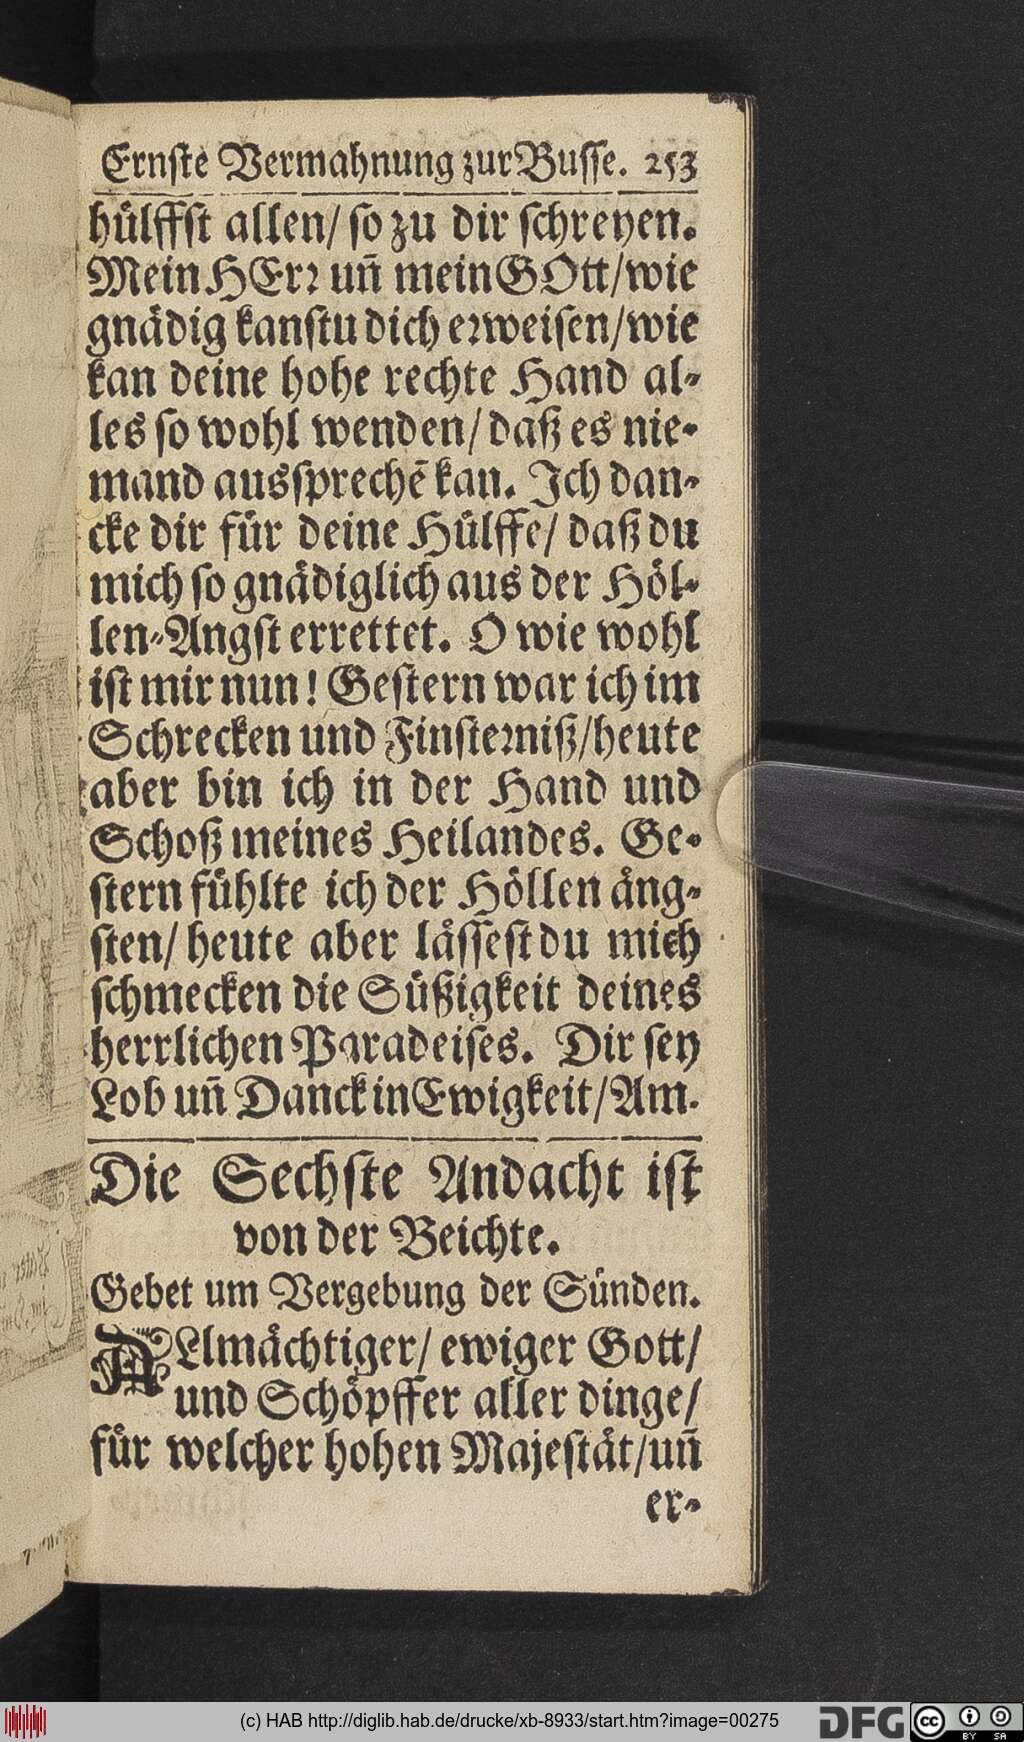 Ernste Vermahnung zur Busse. 253
hülffst allen/ so zu dir schreyen.
Mein HErꝛ uñ mein GOtt/wie
gnädig kanstu dich eꝛweisen/wie
kan deine hohe rechte Hand al-
les so wohl wenden/ daß es nie-
mand aussprechẽ kan. Ich dan-
cke dir für deine Hülffe/ daß du
mich so gnädiglich aus der Höl-
len-Angst errettet. O wie wohl
ist mir nun! Gestern war ich im
Schrecken und Finsteꝛniß/heute
aber bin ich in der Hand und
Schoß meines Heilandes. Ge-
stern fühlte ich der Höllen äng-
sten/ heute aber lässest du mich
schmecken die Süßigkeit deines
herrlichen Paradeises. Dir sey
Lob uñ Danck in Ewigkeit/Am.
Die Sechste Andacht ist
von der Beichte.
Gebet um Vergebung der Sünden.
ALlmächtiger/ ewiger Gott/
und Schöpffer aller dinge/
für welcher hohen Majestät/uñ
er-
(c) HAB http://diglib.hab.de/drucke/xb-8933/start.htm?image=00275
DFG cc BY SA